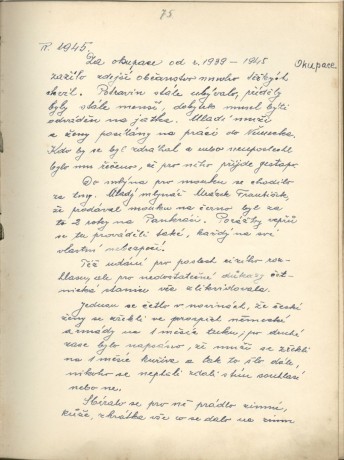 75
IV. 1945.
Za okupace od r. 1939 – 1945
Okupace
zažilo zdejší občanstvo mnoho těžkých
chvil. Potravin stále ubývalo, příděly
byly stále menší, dobytek musel býti
odváděn na jatka. Mladí muži
a ženy posíláni na práci do Německa.
Kdo by se byl zdráhal a nebo neuposlechl
bylo mu řečeno, že pro něho přijde gestapo.
Do mlýna pro mouku se chodilo
za tmy. Mladý mlynář František,
že prodával mouku na černo byl za
to 2 roky na Pankráci. Porážky vepřů
se tu prováděli také, každý na své
vlastní nebezpečí.
Též udání pro poslech cizího roz-
hlasu, ale pro nedostatečné důkazy čet-
nická stanice vše zlikvidovala.
Jednou se četlo v novinách, že české
ženy se zřekli ve prospěch německé
armády na 1 měsíc tuku, po druhé
zase bylo napsáno, že muži se zřekli
na 1 měsíc kuřiva a tak to šlo dále,
nikoho se neptali zdali s tím souhlasí
nebo ne.
Sbíralo se pro ně prádlo zimní,
kůže, zkrátka vše co se dalo na zimu